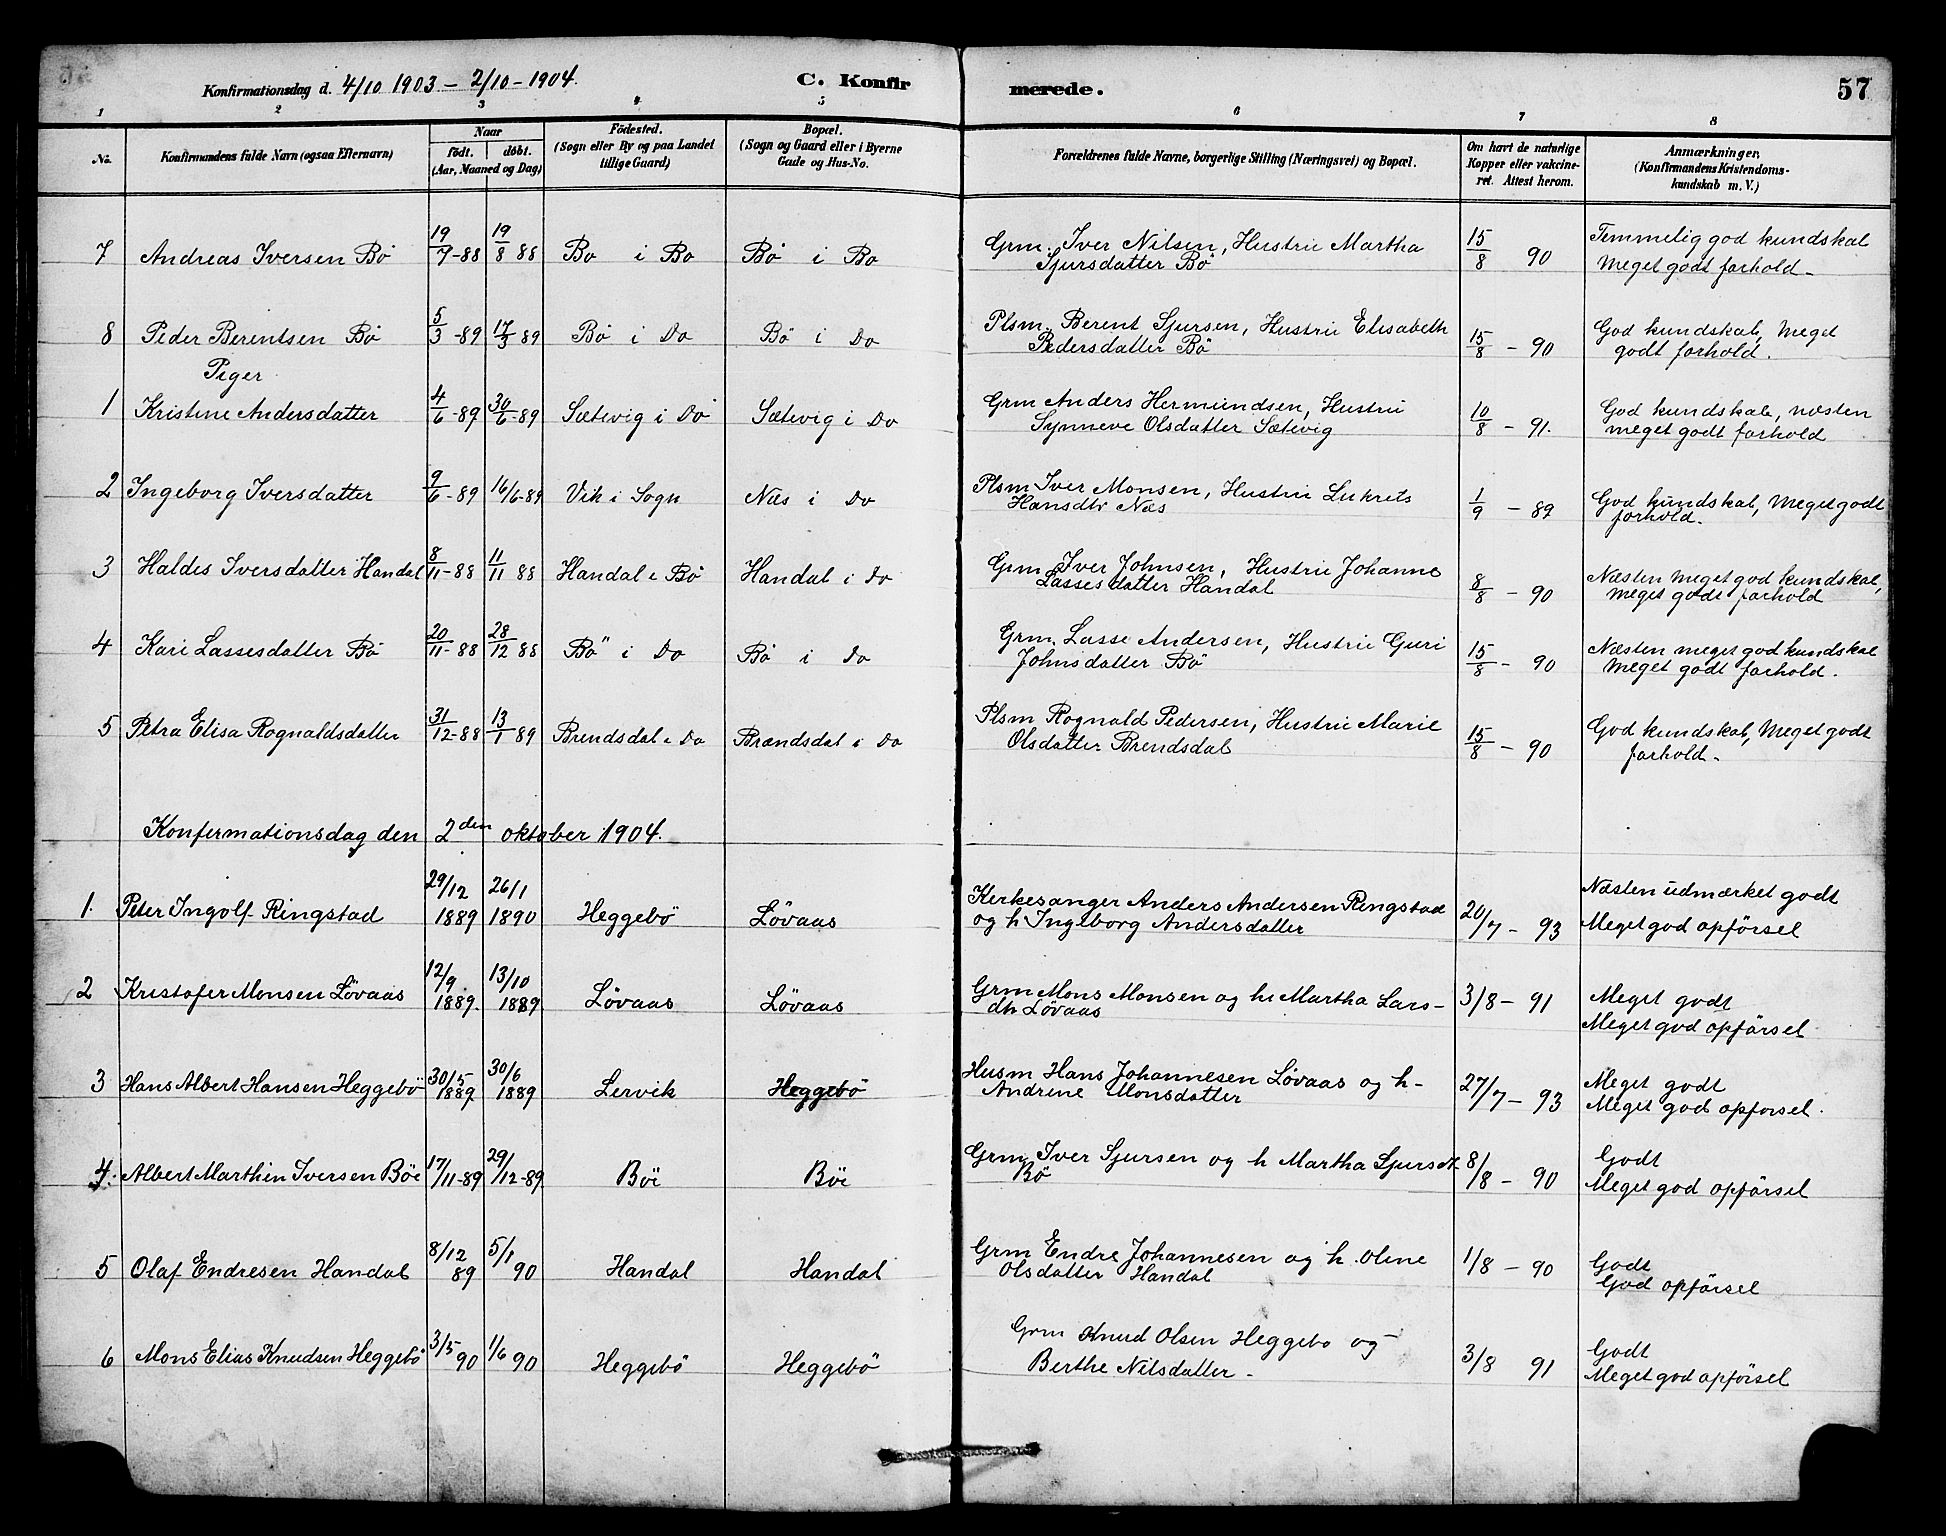 Konfirmationsdag d. 4/10 1903 – 2/10 – 1904. C. Konfirmerede. 57
1 2 3 4 5 6 7 8
No. Konfirmandens fulde Navn (ogsaa Efternavn) Naar født. døbt. (Aar, Maaned og Dag) Fødested. (Sogn eller By og paa Landet tillige Gaard) Bopæl. (Sogn og Gaard eller i Byerne Gade og Hus-No. Forældrenes fulde Navne, borgerlige Stilling (Næringsvei) og Bopæl. Om havt de naturlige Kopper eller vakcineret. Attest herom. Anmærkninger, (Konfirmandens Kristendomskundskab m. V.)
7 Andreas Iversen Bö 19/7-88 19/8 88 Bo i Bo Bö i Bo Grm. Iver Nilsen, Hustru Martha Sjursdatter Bö 15/8 90 Temmelig god kundskab Meget godt forhold –
8 Peder Berentsen Bö 5/3-89 17/3 89 Bö i Do Bö i Do Plsm. Berent Sjursen, Hustru Elisabeth Pedersdatter Bö 15/8 – 90 God kundskab, Meget godt forhold.
Piger
1 Kristine Andersdatter 4/6-89 30/6-89 Sætevig i Do Sætevig i Do Grm Anders Hermundsen, Hustru Synneve Olsdatter Sætevig 10/8 – 91. God kundskab, næsten meget godt forhold
2 Ingeborg Iversdatter 9/6-89 16/6-89 Vik i Sogn Næs i Do Plsm Iver Monsen, Hustru Lukrets Hansdtr Næs 1/9 – 89 God kundskab, Meget godt forhold.
3 Haldis Iversdatter Handal 8/11-88 11/11 88 Handal i Bö Handal i Do Grm Iver Johnsen, Hustru Johanne Lassesdatter Handal 8/8 – 90 Næsten Meget god kundskab, Meget godt forhold
4 Kari Lassesdatter Bö 20/11-88 28/12 88 Bö i Do Bö i Do Grm. Lasse Andersen, Hustru Guri Johnsdatter Bö 15/8 – 90 Næsten meget god kundskab Meget godt forhold.
5 Petra Elisa Rognaldsdatter 31/12-88 13/1 89 Brendsdal i Do Brændsdal i Do Plsm Rognald Pedersen, Hustru Marie Olsdatter Brendsdal 15/8 – 90 God kundskab, Meget godt forhold –
Konfermationsdag den 2den oktober 1904.
1. Peter Ingolf Ringstad 29/12 1889 26/1 1890 Heggebö Lövaas Kerkesanger Anders Andersen Ringstad og h Ingeborg Andersdatter 20/7 – 93 Næsten udmærket godt Meget god opförsel
2 Kristofer Monsen Lövaas 12/9 1889. 13/10 1889 Lövaas Lövaas Grm Mons Monsen og h. Martha Larsdtr Lövaas 3/8 – 91 Meget godt Meget god opförsel
3 Hans Albert Hansen Heggebö 30/5 1889 30/6 1889 Lervik Heggebö Husm Hans Johannesen Lövaas og h- Andrine Monsdatter 27/7 – 93 Meget godt Meget god opforsel.
4. Albert Marthin Iversen Böe 17/11-89 29/12-89 Böi Böi Grm Iver Sjursen og h Martha Sjursdt Bö 8/8 – 90 Godt Meget god opförsel
5 Olaf Endresen Handal 8/12 89 5/1 90 Handal Handal Grm Endre Johannesen og h. Oline Olsdatter Handal 1/8 – 90 Godt God opförsel
6 Mons Elias Knudsen Heggebö 3/5 90 1/6 90 Heggebö Heggebö Grm Knud Olsen Heggebo og Berthe Nilsdatter – 3/8 91 Godt Meget god opförsel